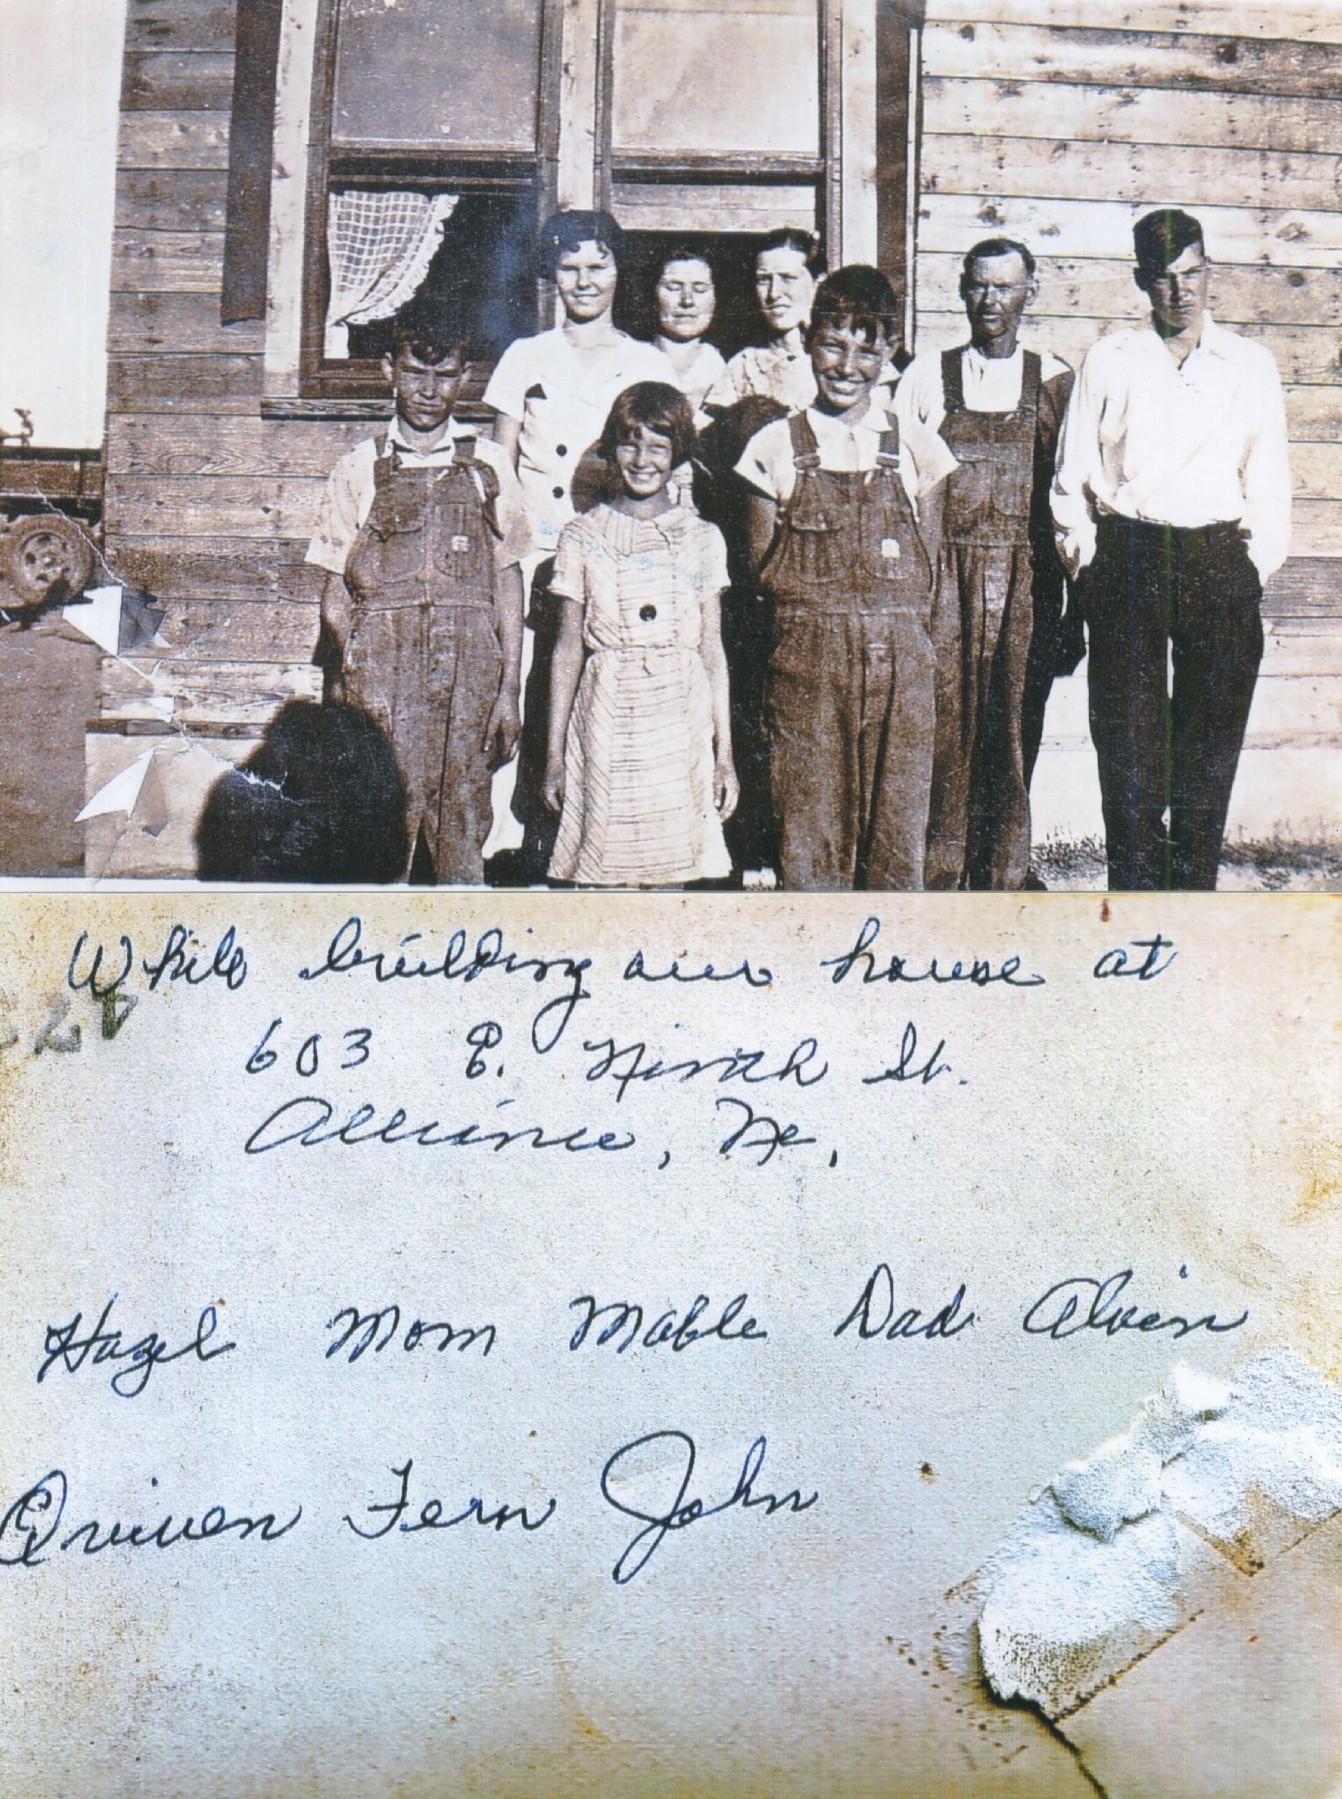 While building our house at
603 E. Ninth St.
Alliance, Ne,
Hazel Mom Mable Dad Alvin
Fern John